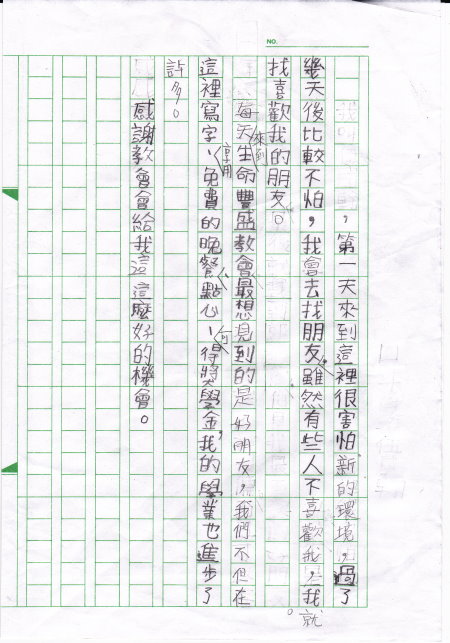 NO.
，第一天來到這裡很害怕新的環境，過了
幾天後比較不怕，我會去找朋友，雖然有些人不喜歡我，我就
找喜歡我的朋友。
每天來到生命豐盛教會最想見到的是好朋友，我們不但在
這裡寫字、享用免費的晚餐、點心、可得獎學金，我的學業也進步了
許多。
感謝教會會給我這這麼好的機會。